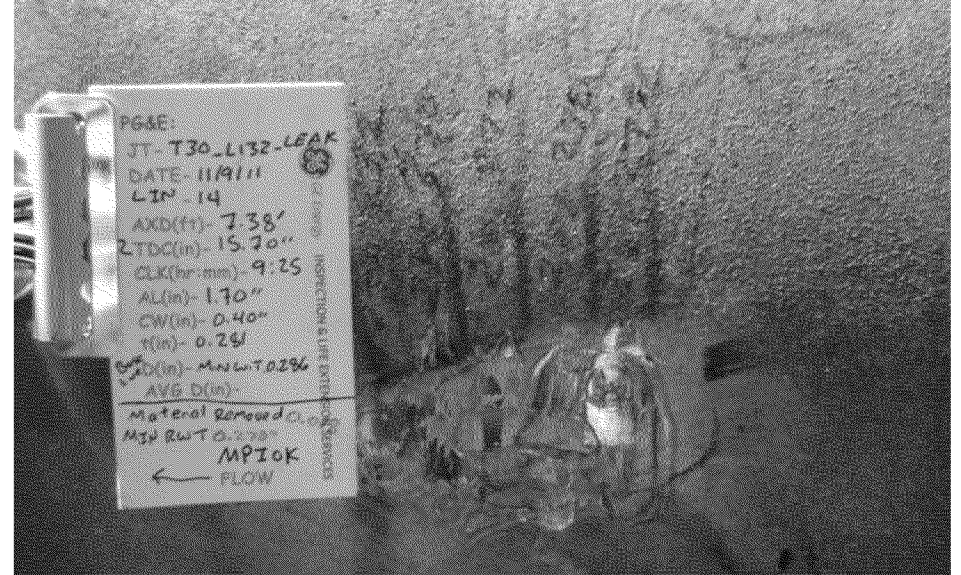 PG&E:
JT- T30_L132_LEAK
DATE- 11/9/11
LIN - 14
AXD(ft)- 7.38'
TDC(in)- 15.70"
CLK(hr:mm)- 9:25
AL(in)- 1.70"
CW(in)- 0.40"
t(in)- 0.281
D(in)- MIN W.T 0.286
AVG D(in)-
Material Removed
MIN RWT
MPI OK
← FLOW
INSPECTION & LIFE EXTENSION SERVICES